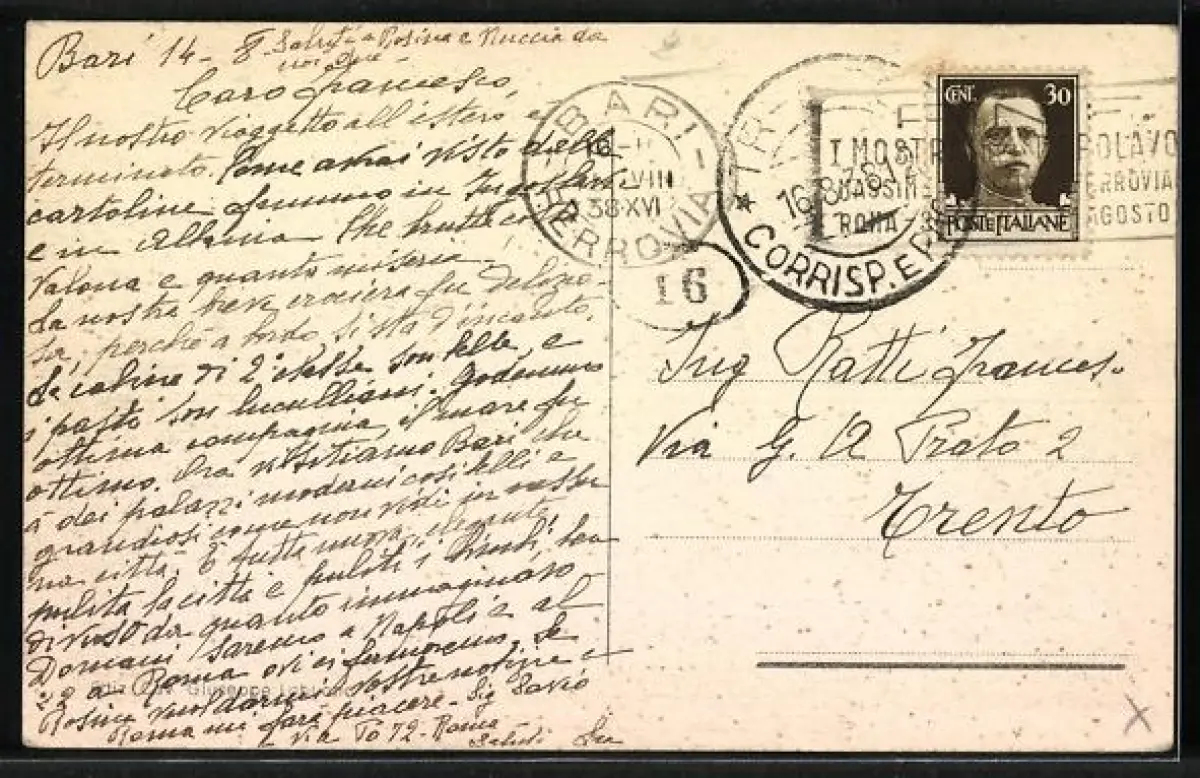 Bari 14-8
Saluti a Rosina e Nuccia da
noi due -
Caro Francesco,
Il nostro viaggetto all'estero è
terminato. Come avrai visto dalle
cartoline fummo in Jugoslavia
e in Albania. Che brutta cosa
Valona e quanta miseria.
La nostra breve crociera fu delizio-
sa, perchè a bordo si sta d'incanto.
Le cabine di 2ª classe son belle, e
i pasti son luculliani. Godemmo
ottima compagnia, il mare fu
ottimo. Ora visitiamo Bari che
à dei palazzi moderni così belli e
grandiosi come non vidi in nessu
na città. È tutta nuova, elegante,
pulita la città e puliti i
diverso da quanto immaginavo.
Domani saremo a Napoli e al
a Roma ove ci fermeremo. Se
Rosina vuol darmi vostre notizie a
Roma mi farà piacere - Sig Savio
Via Po 72 - Roma
Saluti
BARI-
FERROVIA
38-XVI
16
CORRISP. E P
16 8
I MOSTR
DOPOLAVO
MASSIM
FERROVIA
ROMA
AGOSTO
CENT. 30
POSTE ITALIANE
Ing Ratti Francesco
Via G. A Prato 2
Trento
Giuseppe
X